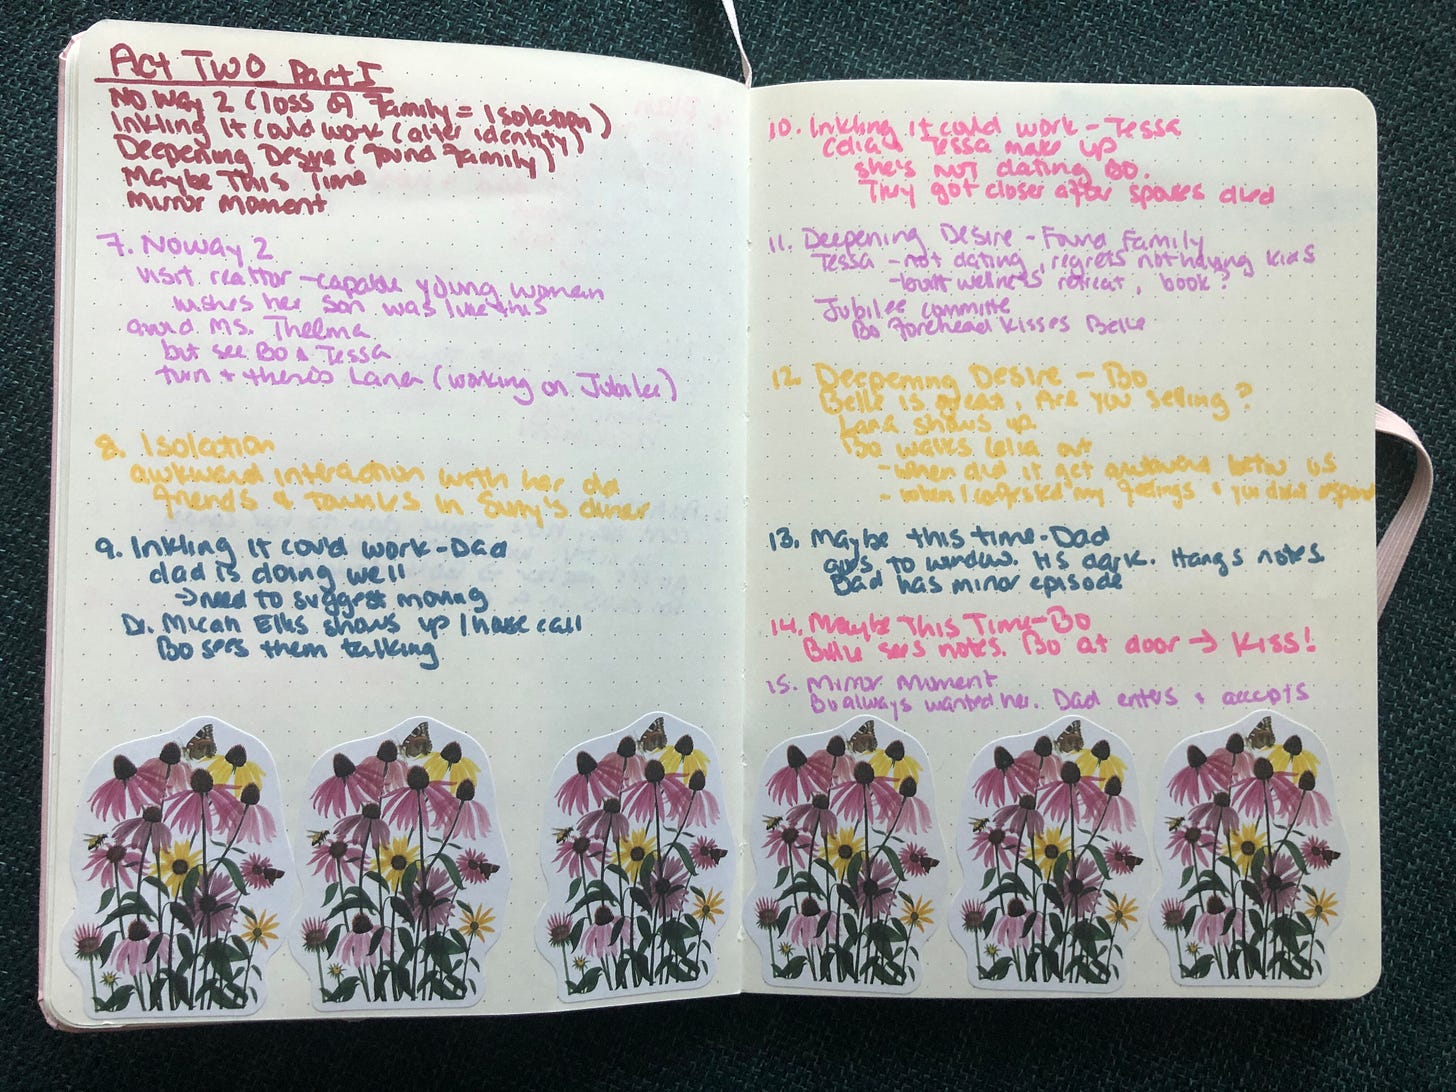 Act Two Part I
No Way 2 (loss of Family = Isolation)
Inkling it could work (alter identity)
Deepening Desire (Found Family)
Maybe This Time
Mirror Moment
7. No way 2
visit realtor - capable young woman
wishes her son was like this
avoid Ms. Thelma
but see Bo & Tessa
turn + there's Lana (working on Jubilee)
8. Isolation
awkward interaction with her old
friends & in diner
9. Inkling it could work - Dad
dad is doing well
→ need to suggest moving
Dr. Micah Ellis shows up / house call
Bo sees them talking
10. Inkling it could work - Tessa
Celia & Tessa make up
she's NOT dating Bo.
They got closer after spouses died
11. Deepening Desire - Found Family
Tessa - not dating, regrets not having kids
- built wellness retreat, book?
Jubilee committe
Bo forehead kisses Belle
12. Deepening Desire - Bo
Belle is great, Are you selling?
Lana shows up
Bo walks Celia out
- when did it get awkward betw us
- when I confessed my feelings & you didnt
13. Maybe this time - Dad
goes to window. Its dark. Hangs notes
Dad has minor episode
14. Maybe This Time - Bo
Belle sees notes. Bo at door → Kiss!
15. Mirror Moment
Bo always wanted her. Dad enters + accepts